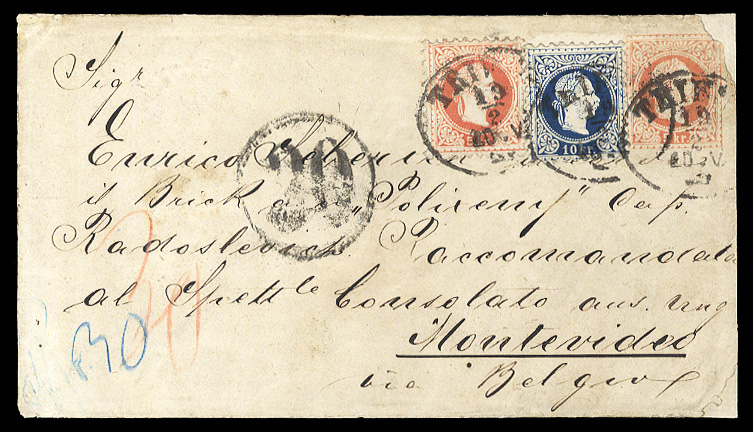 Sigr
Enrico
il Brick a. u. „Polixeny" Cap.
Radoslevich Raccomandata
al Spettle Consolato aus. ung
Montevideo
via Belgio
TRIE
13
2
10 kr.
TRIE
13
2
20
30
30